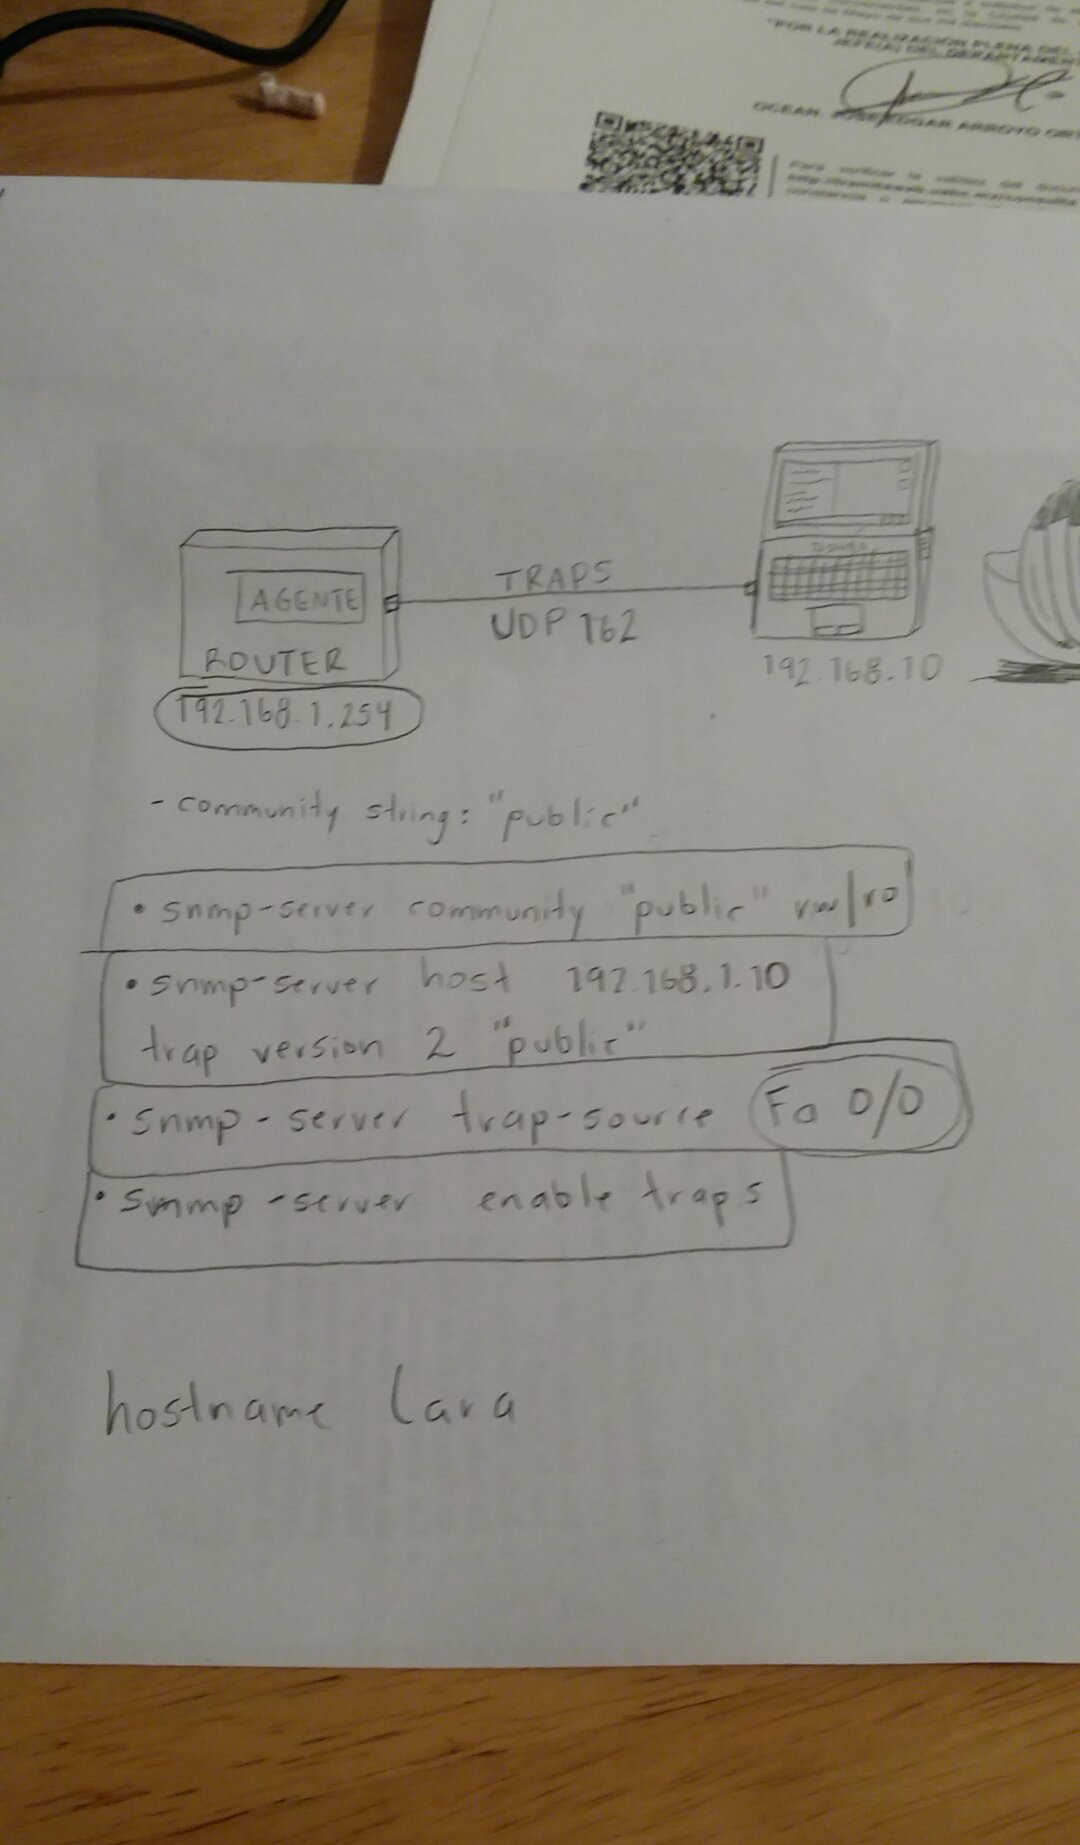 "POR LA REALIZACIÓN PLENA DEL
JEFE(A) DEL DEPARTAMENT
OCEAN. JOSE EDGAR ARROYO
Para verificar la validez del
AGENTE
ROUTER
192.168.1.254
TRAPS
UDP 162
192.168.10
- community string: "public"
• snmp-server community "public" rw/ro
• snmp-server host 192.168.1.10
trap version 2 "public"
• snmp-server trap-source Fa 0/0
• snmp-server enable traps
hostname Lara